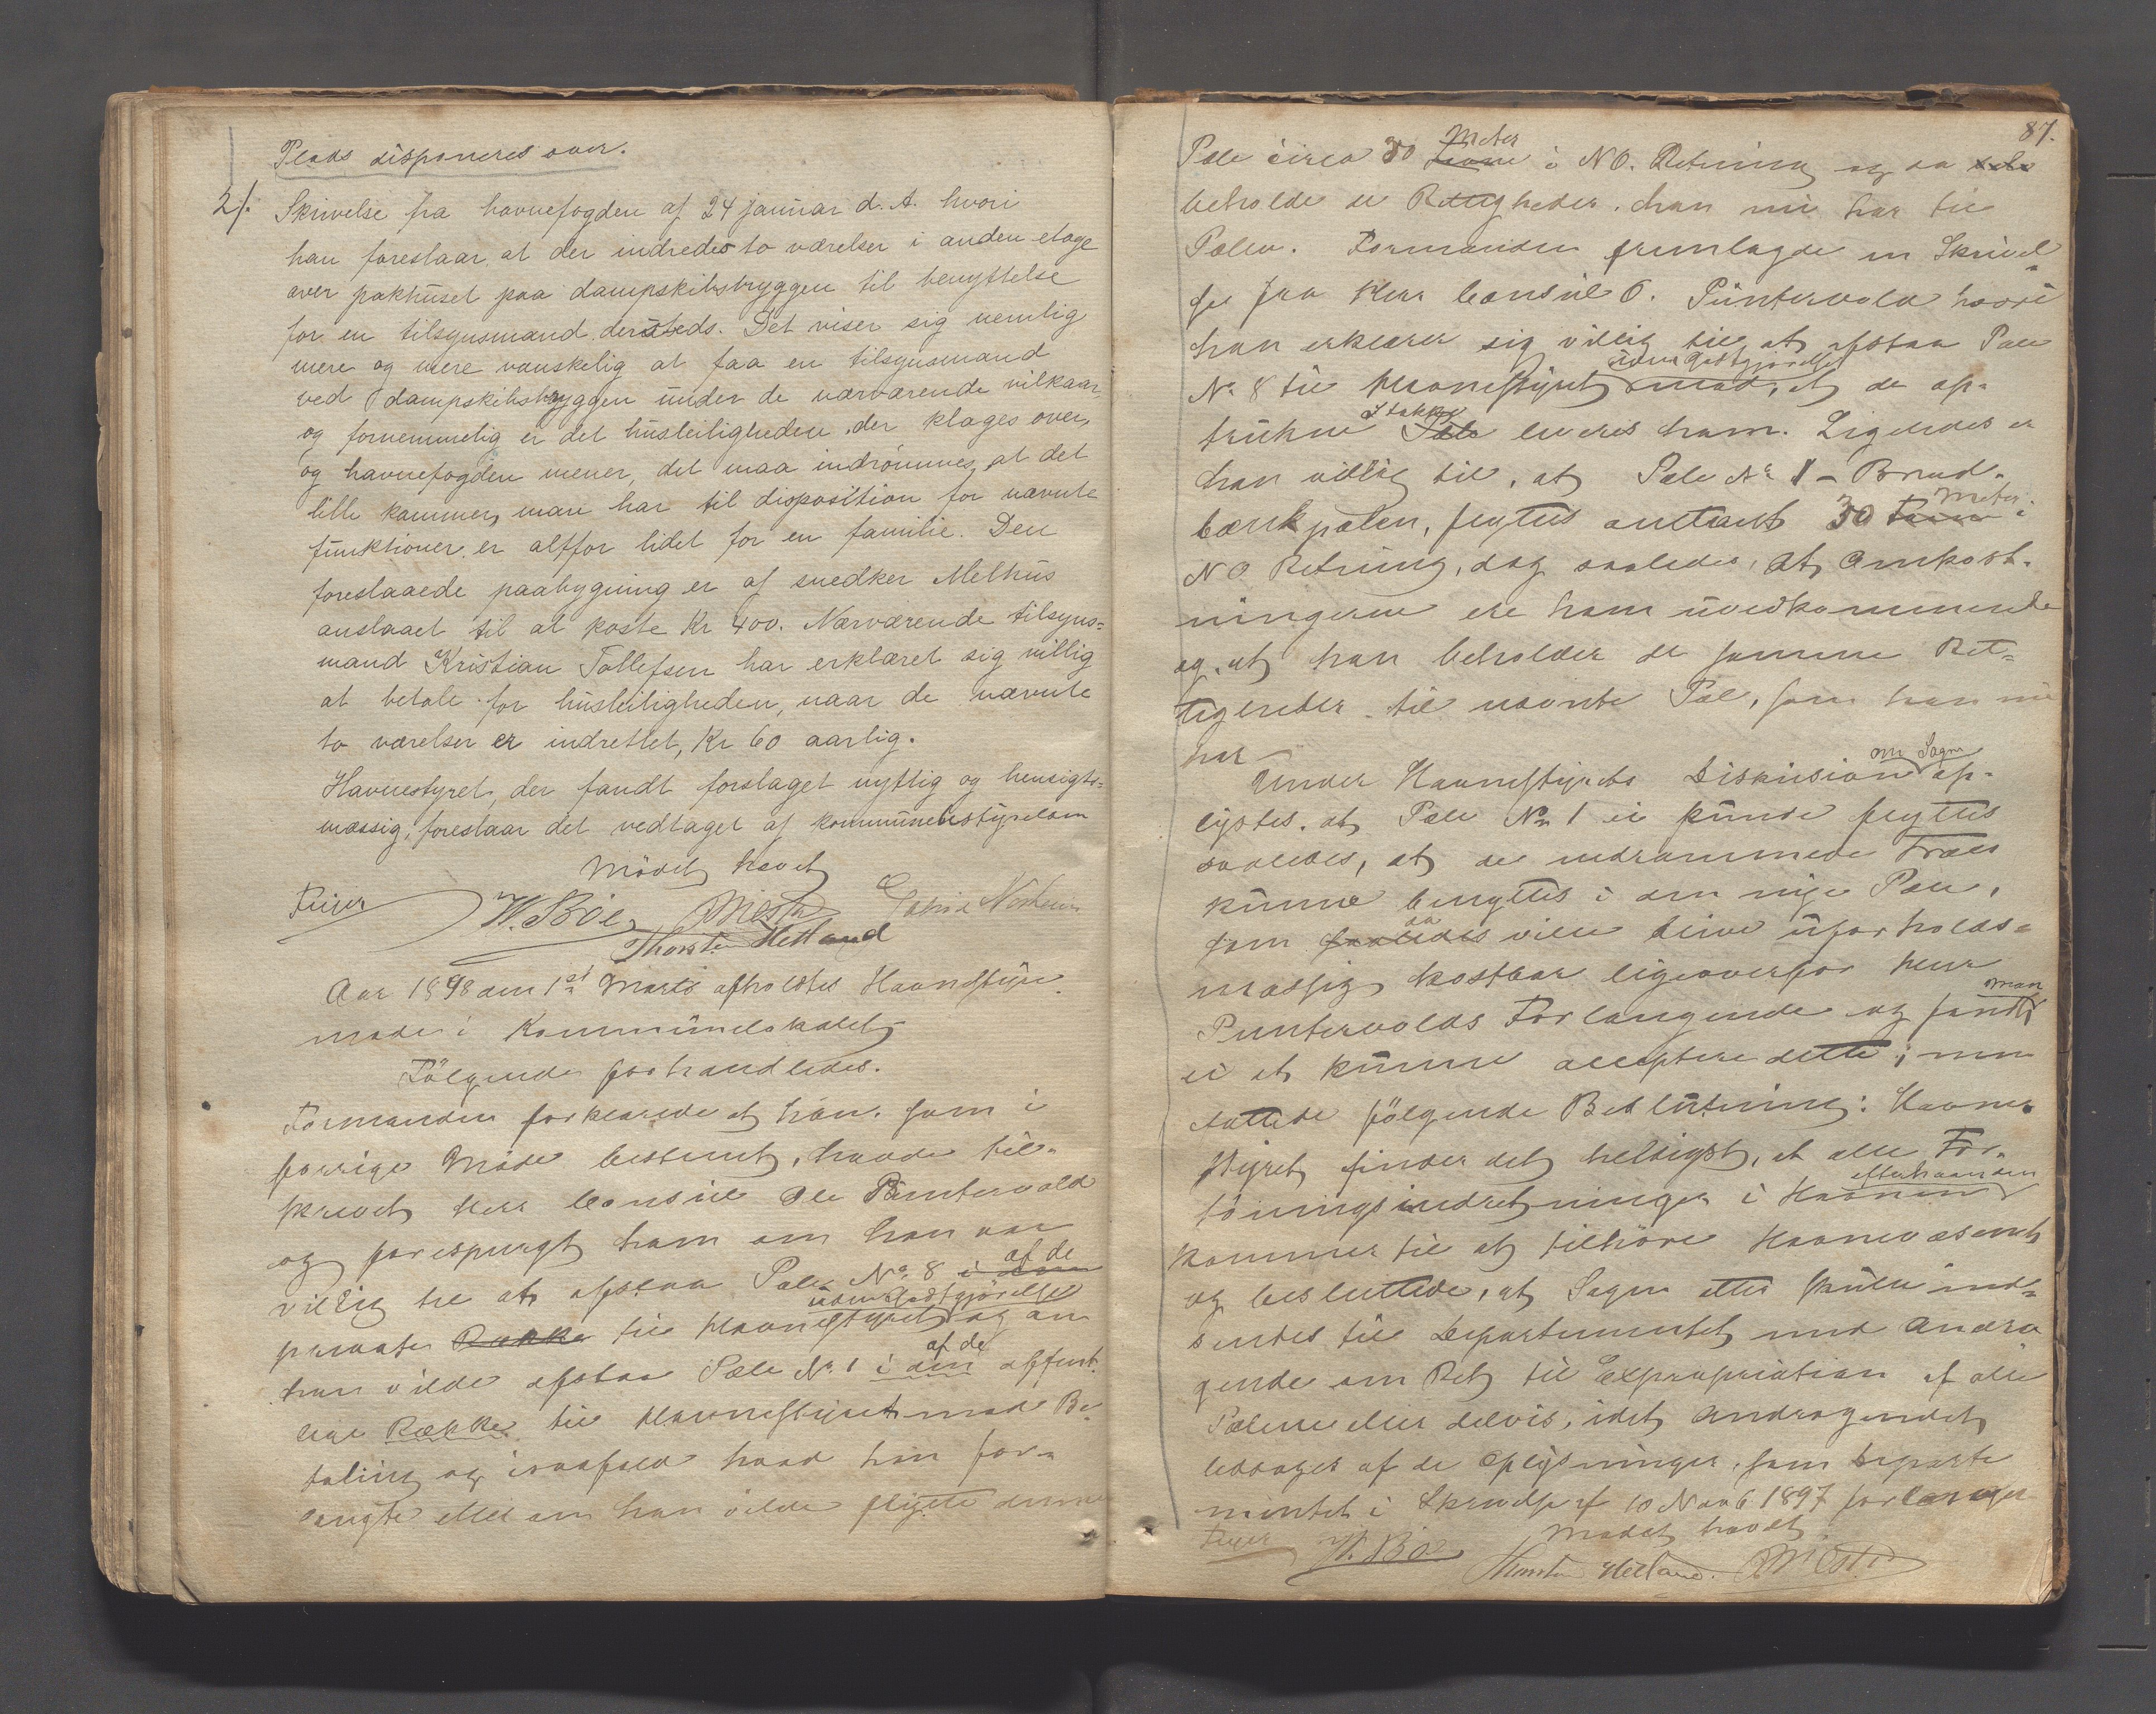 Plads disponeres over.
2/. Skrivelse fra havnefogden af 24 januar d. A. hvori
han foreslaar at der indredes to værelser i anden etage
over pakhuset paa dampskibsbryggen til benyttelse
for en tilsynsmand dersteds. Det viser sig nemlig
mere og mere vanskelig at faa en tilsynsmand
ved dampskibsbryggen under de nærværende vilkaar,
og fornemmelig er det husleiligheden der klages over,
og havnefogden mener, det maa indrömmes, at det
lille kammer, man har til disposition for nævnte
funktioner er altfor lidet for en familie. Den
foreslaaede paabygning er af snedker Melhus
anslaaet til at koste Kr 400. Nærværende tilsyns=
mand Kristian Tollefsen har erklæret sig villig
at betale for husleiligheden, naar de nævnte
to værelser er indrettet, Kr 60 aarlig.
Havnestyret, der fandt forslaget nyttig og hensigts=
mæssig, foreslaar det vedtaget af kommunestyrelsen
Mödet hævet
W. Böe
Thorst. Hetland
Aar 1898 den 1st Marts afholdtes Havnestyre
möde i Kommunelokalet
Fölgende forhandledes.
Formanden forklarede at han som i
forrige Möde bestemt, havde til-
skrevet Herr Consul Ole Puntervold
og forespurgt ham om han var
af de
villig til at afstaa Pæle No 8 i den
uden Godtgjörelse
private Række til Havnestyret og om
af de
han vilde afstaa Pæle No 1 i den offent-
lige Række til Havnestyret mod Be-
taling og isaafald hvad han for-
langte eller om han vilde flytte denne
87.
Meter
Pæle circa 30 i NO. Retning og da
beholde de Rettigheder han nu har til
Pælen. Formanden fremlagde en Skrivel=
se fra Herr Consul O. Puntervold hvori
han erklærer sig villig til at afstaa Pæle
uden Godtgjörelse
No 8 til Havnestyret mod, at de op-
Stokke
trukne Pæle leveres ham. Ligeledes er
han villig til, at Pæle No 1 - Brud-
Meter
bænkpælen, flyttes omtrent 30 i
NO Retning, dog saaledes, at Omkost-
ningerne ere ham uvedkommende
og at han beholder de samme Ret=
tigheder til nævnte Pæl, som han nu
har
om Sagen
Under Havnestyrets Diskusion op-
lystes at Pæle No 1 ei kunde flyttes
saaledes, at de nedrammede Træer
kunne benyttes i den nye Pæle,
da
som saaledes vilde blive uforholds=
mæssig kostbar ligeoverfor Herr
man
Puntervolds Forlangende og fandt
ei at kunne acceptere dette; men
fattede fölgende Beslutning: Havne-
styret finder det heldigst, at alle For-
efterhaanden
töiningsindretninger i Havnen
kommer til at tilhöre Havnevæsenet
og besluttede, at Sagen atter skulle ind=
sendes til Departementet med Andra
gende om Ret til Expropriation af alle
Pælene eller delvis, idet Andragendet
ledsages af de Oplysninger, som Departe
mentet i Skrivelse af 10 Novb 1897 forlanger
Mödet hævet.
W. Böe
Thorsten Hetland.